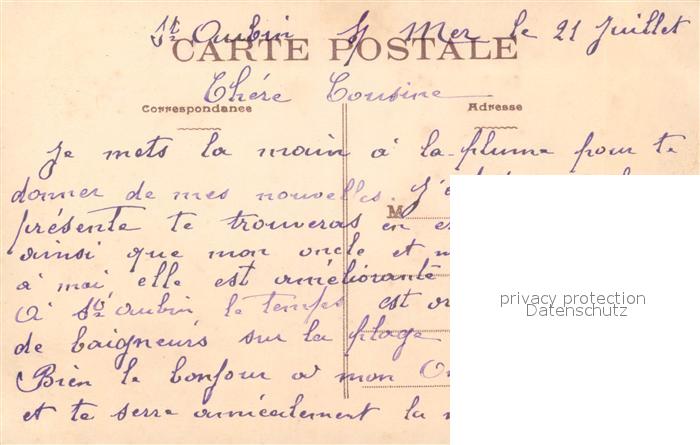 St Aubin s/ Mer le 21 Juillet
CARTE POSTALE
Chére Cousine
Correspondance
Adresse
Je mets la main à la plume pour te
donner de mes nouvelles. J'
présente te trouveras en
M
ainsi que mon oncle et
à moi, elle est améliorante
A St aubin le temps est
de baigneurs sur la plage
Bien le bonjour à mon
et te serre amicalement la
privacy protection
Datenschutz